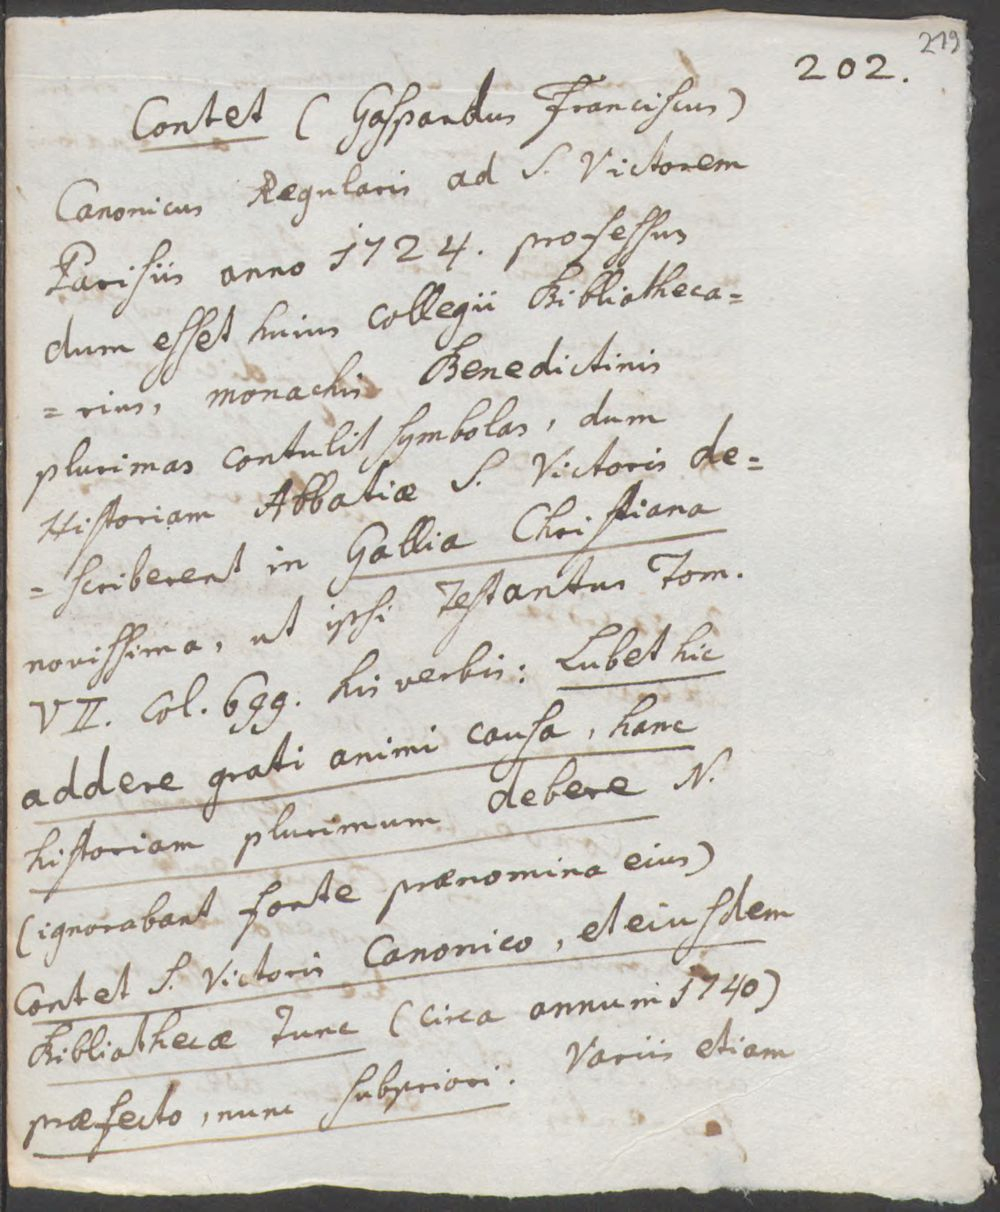 219
202.
Contet (Gaspardus Franciscus)
Canonicus Regularis ad S. Victorem
Parisiis anno 1724. professus
dum esset huius collegii Bibliotheca=
=rius, monachis Benedictinis
plurimas contulit symbolas, dum
Historiam Abbatiæ S. Victoris de=
=scriberent in Gallia Christiana
novissima, ut ipsi testantur Tom.
VII. Col. 699. his verbis: Lubet hic
addere grati animi causa, hanc
historiam plurimum debere N.
(ignorabant forte prænomina eius)
Contet S. Victoris Canonico, et eiusdem
Bibliothecæ tunc (circa annum 1740)
præfecto, nunc subpriori. Variis etiam